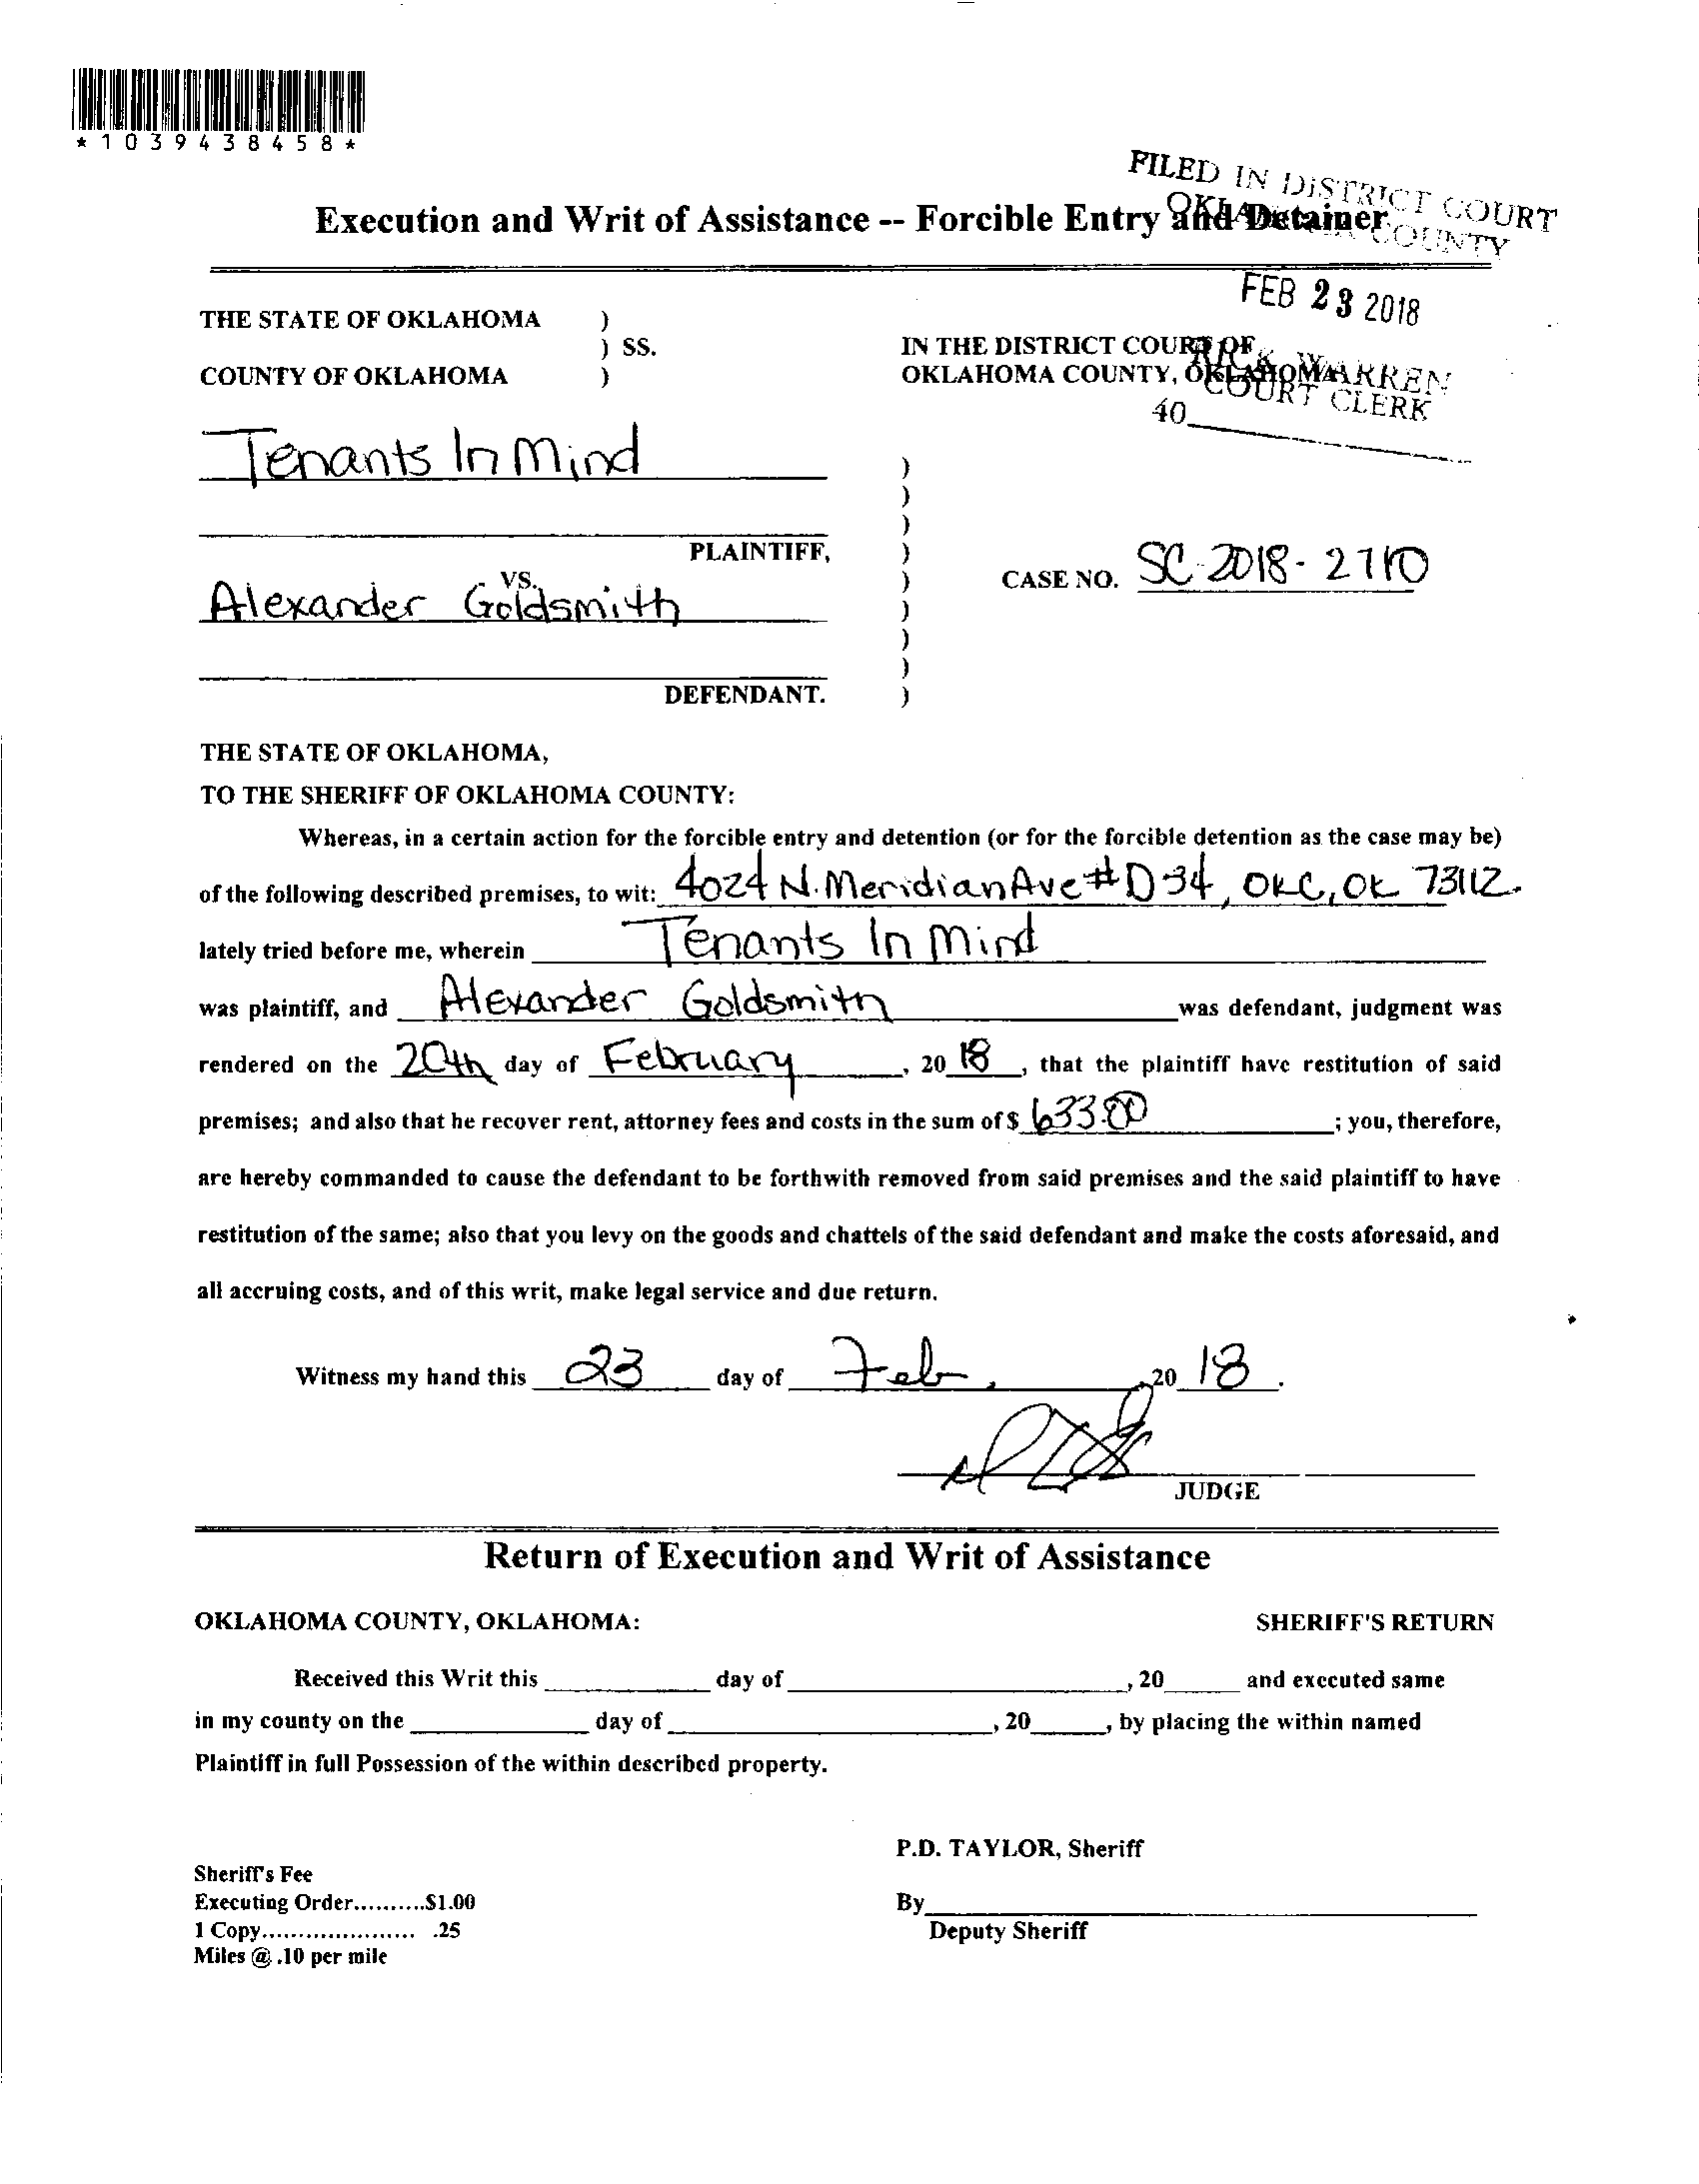 *1039438458*
FILED IN DISTRICT COURT
OKLAHOMA COUNTY
Execution and Writ of Assistance -- Forcible Entry and Detainer
FEB 23 2018
RICK WARREN
COURT CLERK
40
THE STATE OF OKLAHOMA )
) SS.
COUNTY OF OKLAHOMA )
IN THE DISTRICT COURT OF
OKLAHOMA COUNTY, OKLAHOMA
Tenants In Mind
PLAINTIFF,
VS.
Alexander Goldsmith
DEFENDANT.
)
)
)
)
)
)
)
)
)
CASE NO. SC-2018-2710
THE STATE OF OKLAHOMA,
TO THE SHERIFF OF OKLAHOMA COUNTY:
Whereas, in a certain action for the forcible entry and detention (or for the forcible detention as the case may be)
of the following described premises, to wit: 4024 N. Meridian Ave # D34, OKC, OK 73112.
lately tried before me, wherein Tenants In Mind
was plaintiff, and Alexander Goldsmith was defendant, judgment was
rendered on the 20th day of February, 20 18, that the plaintiff have restitution of said
premises; and also that he recover rent, attorney fees and costs in the sum of $ 633.00; you, therefore,
are hereby commanded to cause the defendant to be forthwith removed from said premises and the said plaintiff to have
restitution of the same; also that you levy on the goods and chattels of the said defendant and make the costs aforesaid, and
all accruing costs, and of this writ, make legal service and due return.
Witness my hand this 23 day of Feb., 20 18.
JUDGE
Return of Execution and Writ of Assistance
OKLAHOMA COUNTY, OKLAHOMA: SHERIFF'S RETURN
Received this Writ this ____ day of ____, 20____ and executed same
in my county on the ____ day of ____, 20____, by placing the within named
Plaintiff in full Possession of the within described property.
P.D. TAYLOR, Sheriff
Sheriff's Fee
Executing Order..........$1.00
1 Copy..................... .25
Miles @ .10 per mile
By____
Deputy Sheriff